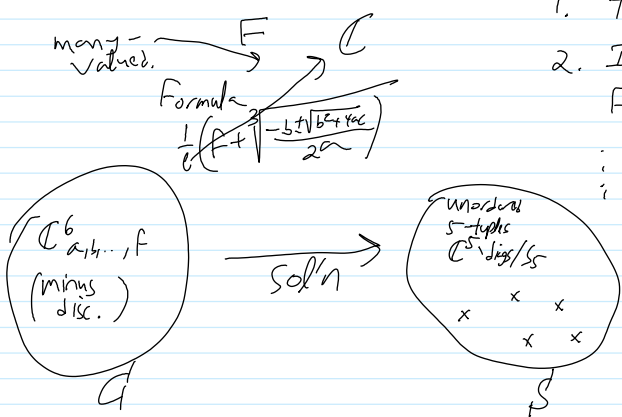 many-valued.
F
ℂ
1. T
2. I
F
Formula
1/e (F + ∛((-b±√(b²+4ac))/2a))
ℂ⁶ a,b,...,F
(minus disc.)
sol'n
unordered
5-tuples
ℂ⁵\diags/S₅
x x x x x
G
S